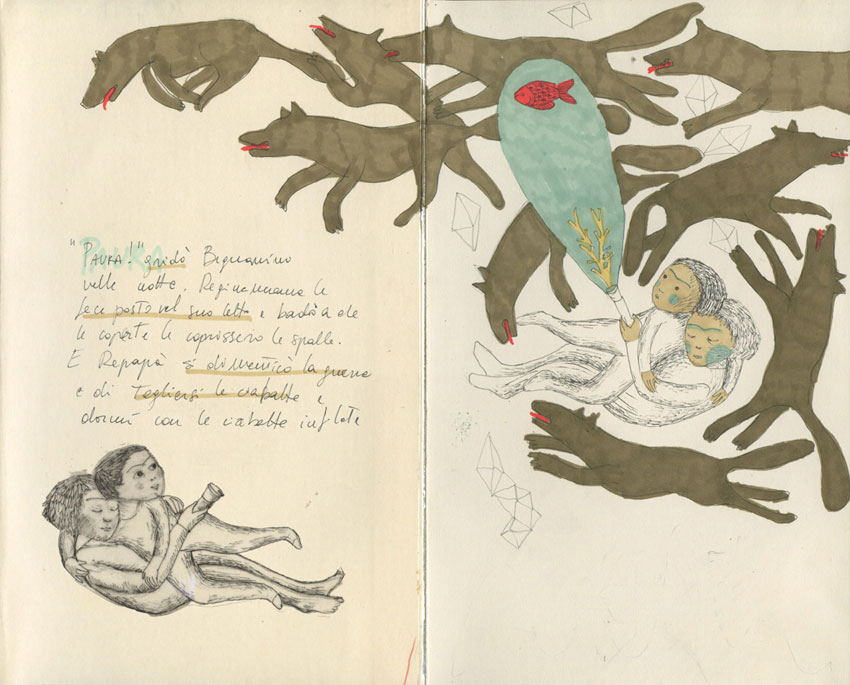 "PAURA!" gridò
nella notte. Reginamamma le
fece posto nel suo letto e badò a che
le coperte le coprissero le spalle.
E Repapà si dimenticò la guerra
e di togliersi le ciabatte e
dormì con le ciabatte infilate